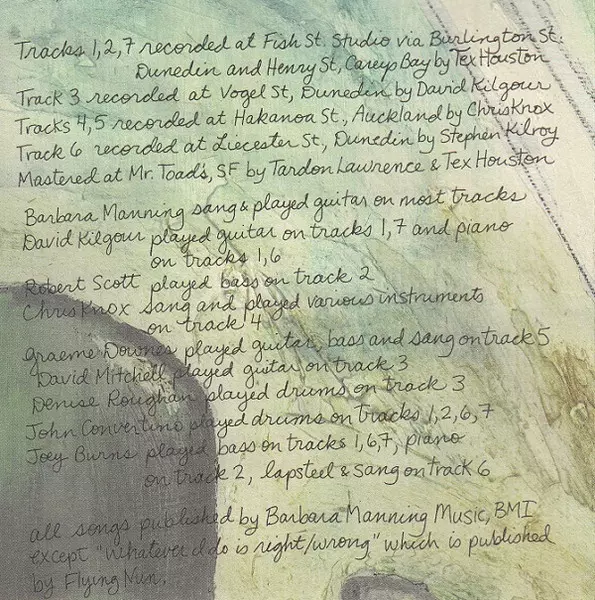 Tracks 1, 2, 7 recorded at Fish St. Studio via Burlington St.
Dunedin and Henry St, Careys Bay by Tex Houston
Track 3 recorded at Vogel St, Dunedin by David Kilgour
Tracks 4, 5 recorded at Hakanoa St., Auckland by Chris Knox
Track 6 recorded at Liecester St, Dunedin by Stephen Kilroy
Mastered at Mr. Toad's, SF by Tardon Lawrence & Tex Houston
Barbara Manning sang & played guitar on most tracks
David Kilgour played guitar on tracks 1, 7 and piano
on tracks 1, 6
Robert Scott played bass on track 2
Chris Knox sang and played various instruments
on track 4
Graeme Downes played guitar, bass and sang on track 5
David Mitchell played guitar on track 3
Denise Roughan played drums on track 3
John Convertino played drums on tracks 1, 2, 6, 7
Joey Burns played bass on tracks 1, 6, 7, piano
on track 2, lapsteel & sang on track 6
all songs published by Barbara Manning Music, BMI
except "whatever I do is right/wrong" which is published
by Flying Nun.